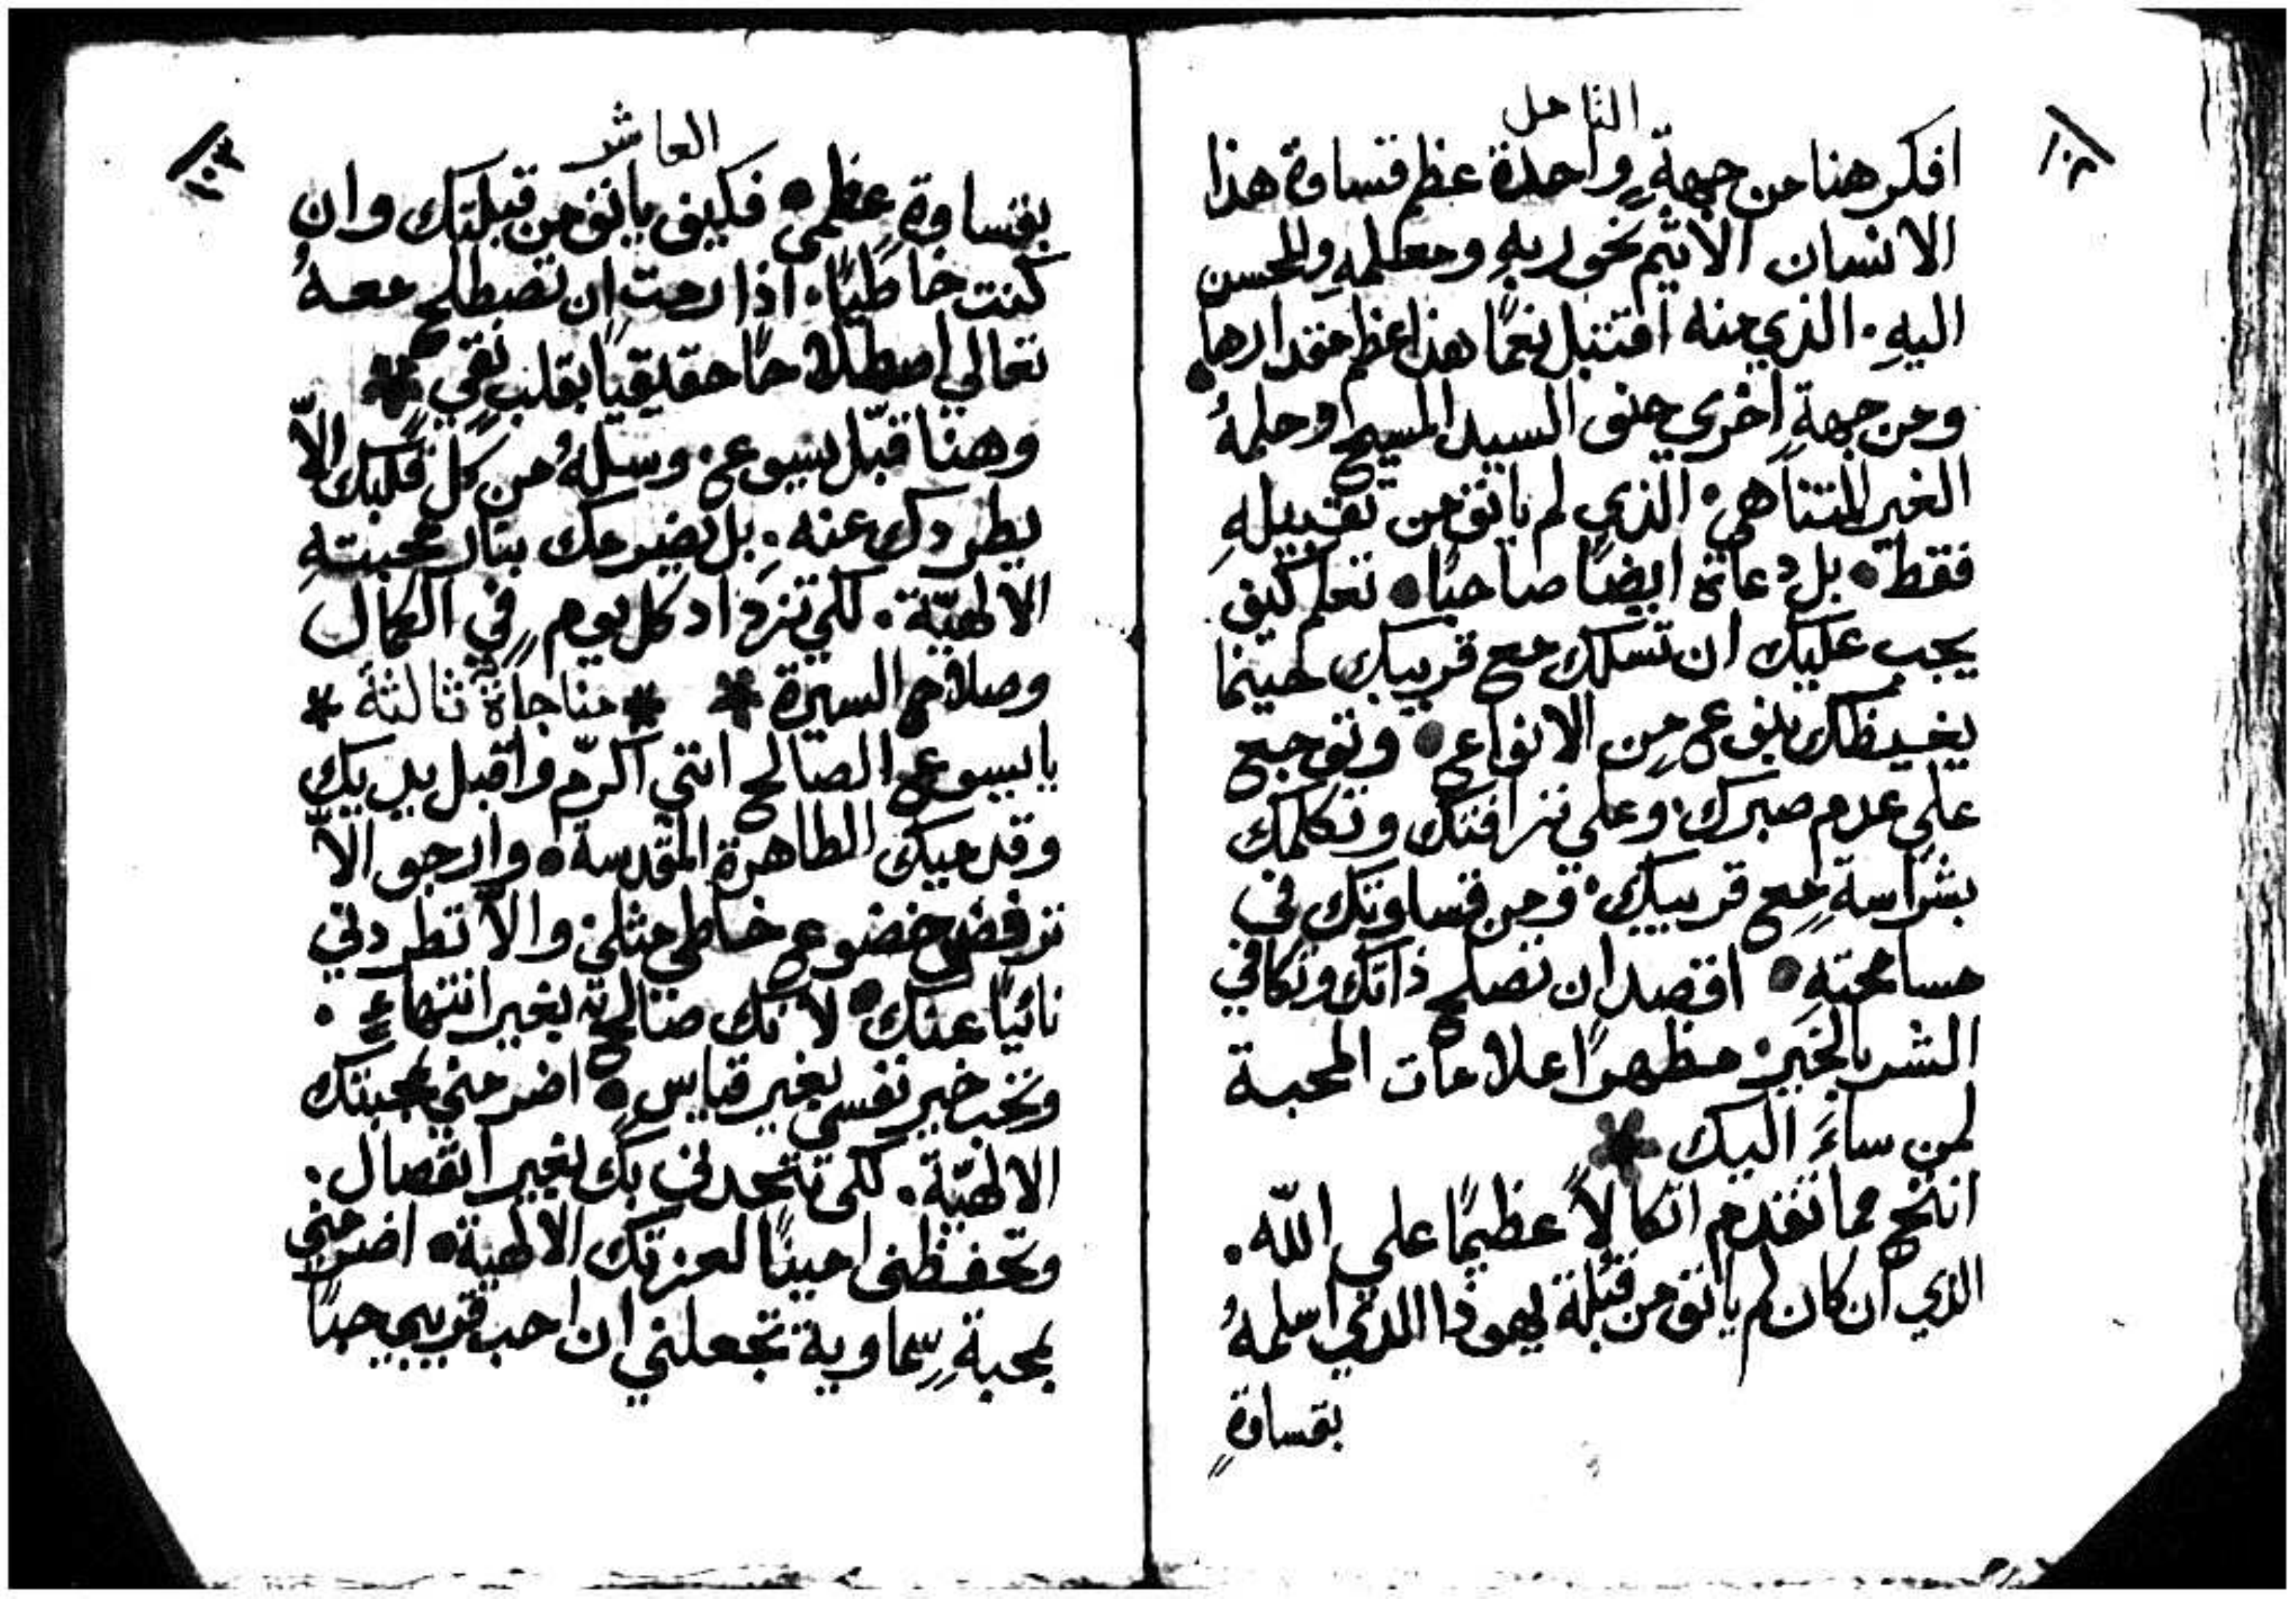 التامل
١٠٢
افكر هنا من جهةٍ واحدة عظم قساوة هذا
الانسان الاثيم نحو ربهِ ومعلمهِ والمحسن
اليهِ. الذي منه اقتبل نعمًا هذا عظم مقدارها
ومن جهةٍ اخري حنو السيد المسيح وحلمهُ
الغير المتناهي. الذي لم يانف من تقبيلهِ
فقط. بل دعاه ايضًا صاحبًا. تعلم كيف
يجب عليك ان تسلك مع قريبك حينما
يغيظك بنوعٍ من الانواع. وتوجع
علي عدم صبرك. وعلي نزاقتك وتكلمك
بشراسةٍ مع قريبك. ومن قساوتك في
مسامحتهِ. اقصد ان تصلح ذاتك وتكافي
الشر بالخير. مظهرًا علامات المحبة
لمن ساءَ اليك *
انتج مما تقدم اتكالاً عظيمًا علي اللّه.
الذي ان كان لم يانف من قبلة يهوذا الذي اسلمهُ
بقساوةٍ
العاشر
١٠٣
بقساوةٍ عظمي. فكيف يانف من قبلتك وان
كنت خاطيًا. اذا رمت ان تصطلح معهُ
تعالي اصطلاحًا حقيقيًا بقلبٍ نقيٍ *
وهنا قبّل يسوع. وسلهُ من كل قلبك الاّ
يطردك عنه. بل يضرمك بنار محبتهِ
الالهيّة. لكي تزداد كل يومٍ في الكمال
وصلاح السيرة * * مناجاةٌ ثالثة *
يا يسوع الصالح انني اكرّم واقبل يديك
وقدميك الطاهرة المقدسة. وارجو الاّ
ترفض خضوع خاطي مثلي. والاّ تطردني
نائيًا عنك. لانك صالحٌ بغير انتهاءٍ.
وتحب خير نفسي بغير قياسٍ. اضرمني بمحبتك
الالهيّة. لكي تتحدني بك بغير انفصال.
وتحفظني امينًا لعزتك الالهية. اضرمني
بمحبةٍ سماوية تجعلني ان احب قريبي حبًا